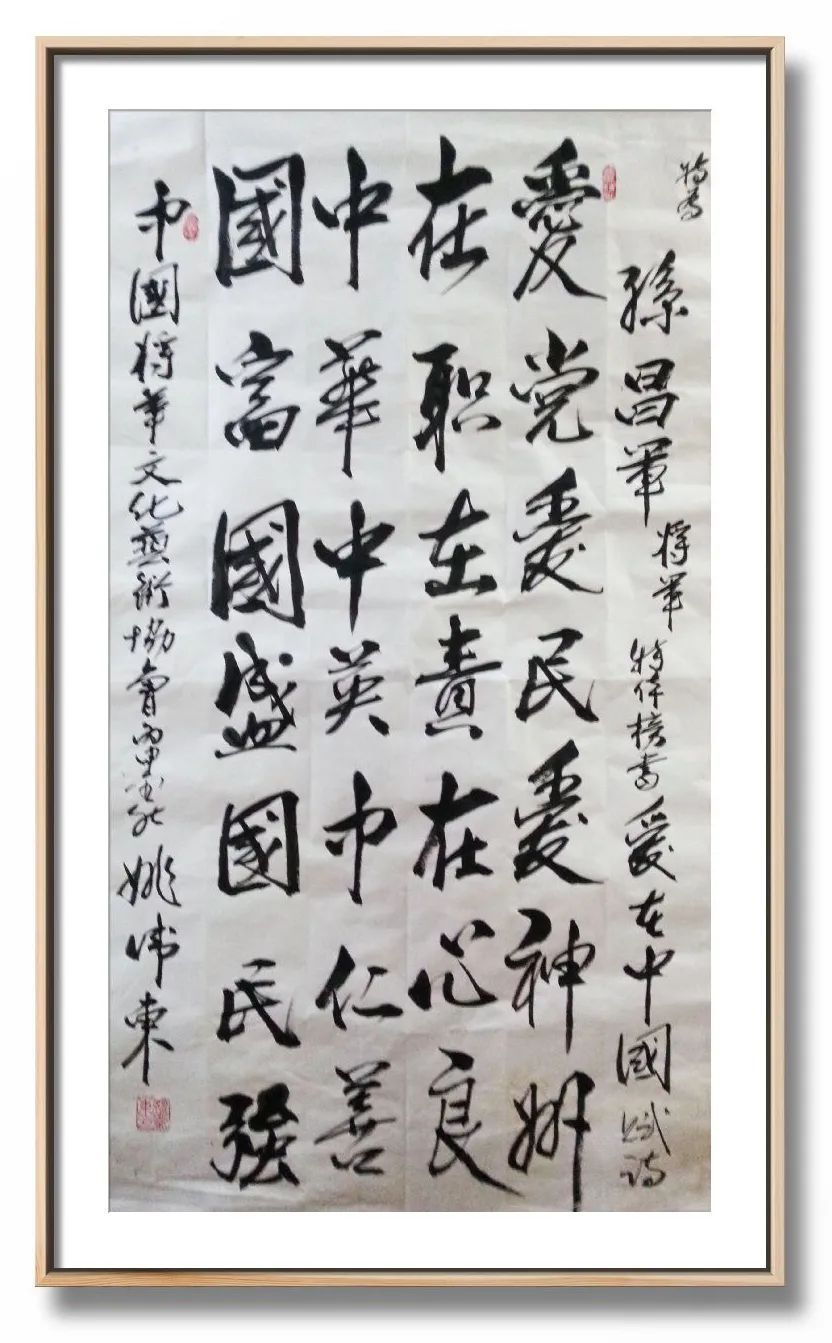 孫昌軍 将軍 特作榜書 愛在中國 賦詩
愛党愛民愛神州
在职在責在心良
中華中英中仁善
國富國盛國民強
中國将軍文化藝術協會 姚伟東